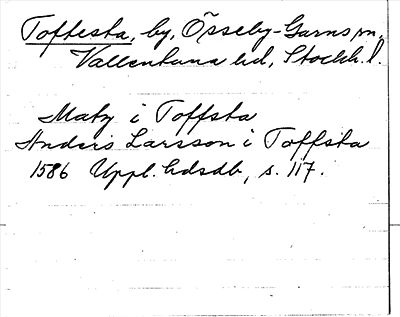 Toftesta, by, Össeby-Garns sn,
Vallentuna hd, Stockh. l.
Matz i Toffsta
Anders Larsson i Toffsta
1586 Uppl. hdsdb, s. 117.